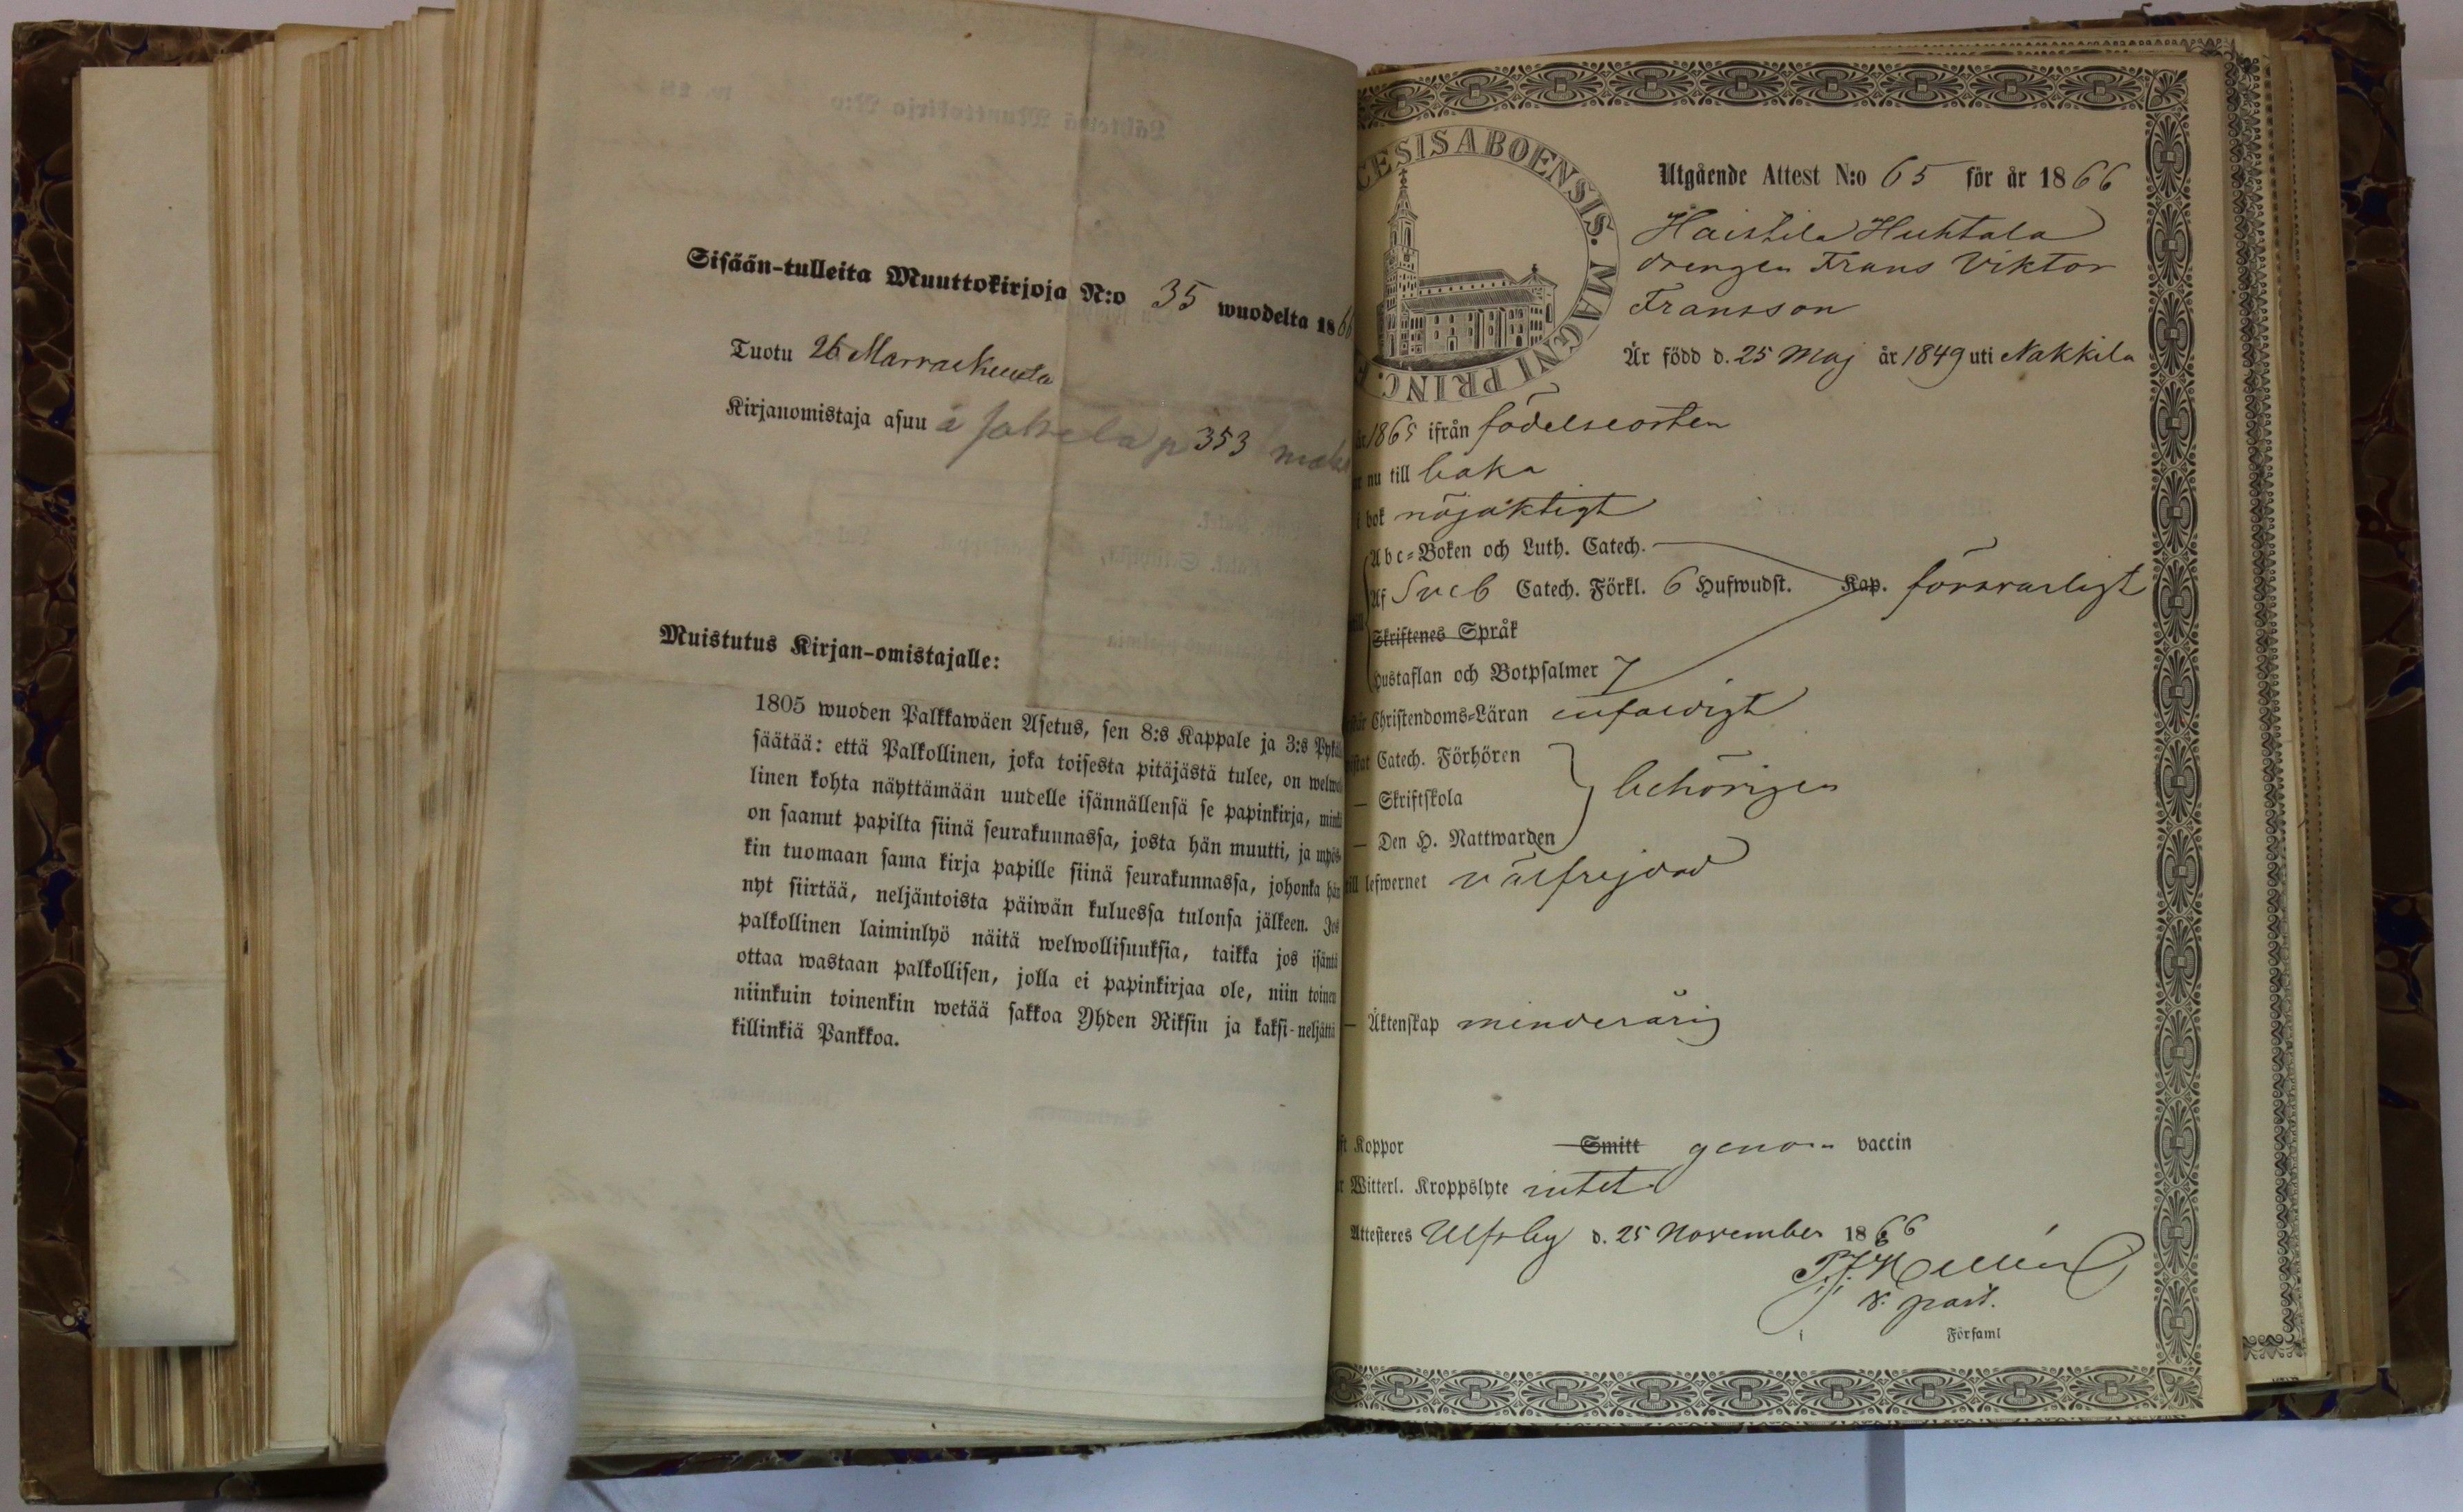 Sisään-tulleita Muuttokirjoja N:o 35 wuodelta 186
Tuotu 26 Marraskuuta
Kirjanomistaja asuu å p 353
Muistutus Kirjan-omistajalle:
1805 wuoden Palkkawäen Asetus, sen 8:s Kappale ja 3:s
säätää: että Palkollinen, joka toisesta pitäjästä tulee, on welwol
linen kohta näyttämään uudelle isännällensä se papinkirja, minkä
on saanut papilta siinä seurakunnassa, josta hän muutti, ja myös-
kin tuomaan sama kirja papille siinä seurakunnassa, johonka hän
nyt siirtää, neljäntoista päiwän kuluessa tulonsa jälkeen. Jos
palkollinen laiminlyö näitä welwollisuuksia, taikka jos isäntä
ottaa wastaan palkollisen, jolla ei papinkirjaa ole, niin toinen
niinkuin toinenkin wetää sakkoa Yhden Riksin ja kaksi-neljättä
killinkiä Pankkoa.
CESIS ABOENSIS. MAGNI PRINC.
Utgående Attest N:o 65 för år 1866
Haistila Huhtala
drengen Frans Viktor
Fransson
Är född d. 25 Maj år 1849 uti Nakkila
1865 ifrån födelseorten
nu till baka
bok nöjaktigt
Abc-Boken och Luth. Catech.
Af Sveb Catech. Förkl. 6 Hufwudst. Kap. försvarligt
Skriftenes Språk
Hustaflan och Botpsalmer 7
Christendoms-Läran enfaldigt
Catech. Förhören
— Skriftskola behörigen
— Den H. Nattwarden
till lefwernet välfrejdad
— Äktenskap minderårig
Koppor Smitt genom vaccin
Witterl. Kroppslyte intet
Attesteres Ulfsby d. 25 November 1866
v. past.
i Församl